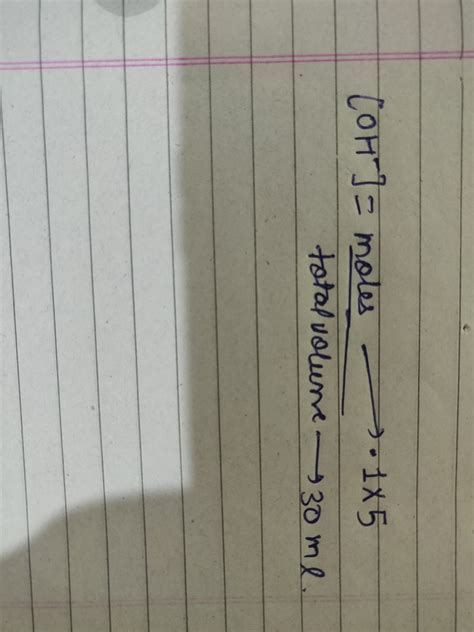 [OH⁻] = moles → .1×5
total volume → 30 ml.